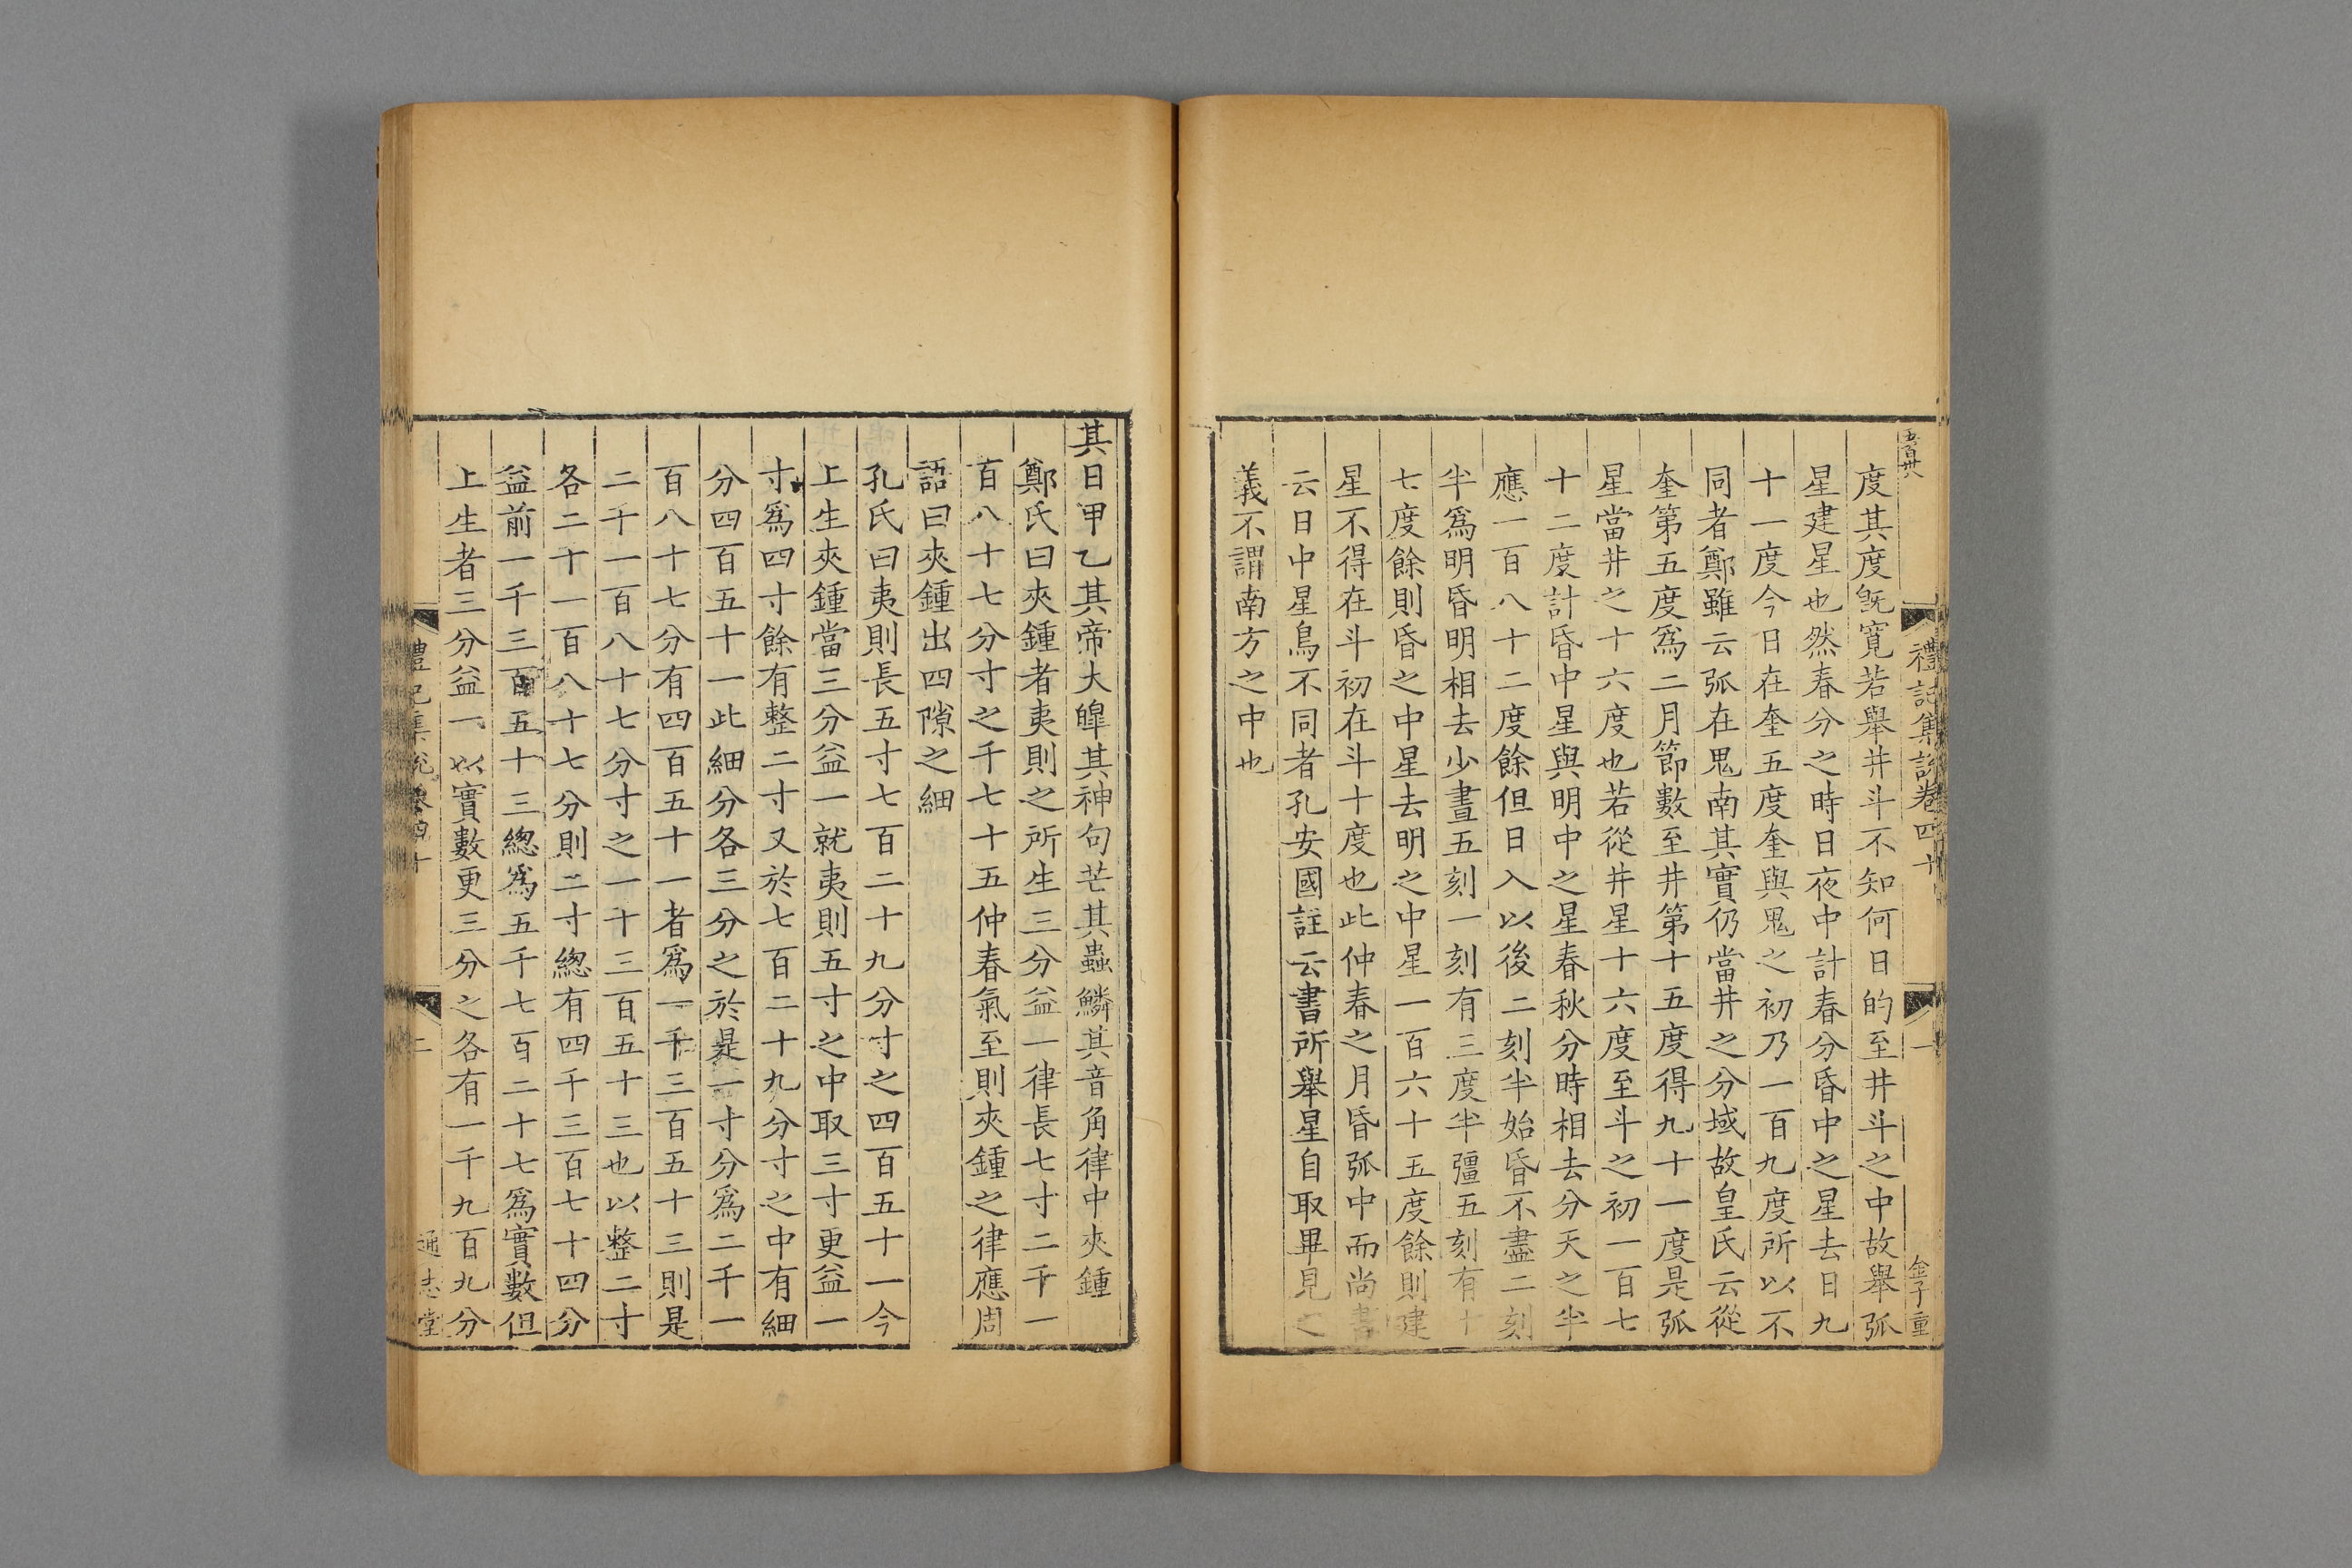 五百卅八
禮記集說卷四十
一
金子重
度其度旣寬若舉井斗不知何日的至井斗之中故舉弧
星建星也然春分之時日夜中計春分昏中之星去日九
十一度今日在奎五度奎與鬼之初乃一百九度所以不
同者鄭雖云弧在鬼南其實仍當井之分域故皇氏云從
奎第五度爲二月節數至井第十五度得九十一度是弧
星當井之十六度也若從井星十六度至斗之初一百七
十二度計昏中星與明中之星春秋分時相去分天之半
應一百八十二度餘但日入以後二刻半始昏不盡二刻
半爲明昏明相去少晝五刻一刻有三度半彊五刻有十
七度餘則昏之中星去明之中星一百六十五度餘則建
星不得在斗初在斗十度也此仲春之月昏弧中而尚書
云日中星鳥不同者孔安國註云書所舉星自取畢見之
義不謂南方之中也
其日甲乙其帝大皥其神句芒其蟲鱗其音角律中夾鍾
鄭氏曰夾鍾者夷則之所生三分益一律長七寸二千一
百八十七分寸之千七十五仲春氣至則夾鍾之律應周
語曰夾鍾出四隙之細
孔氏曰夷則長五寸七百二十九分寸之四百五十一今
上生夾鍾當三分益一就夷則五寸之中取三寸更益一
寸爲四寸餘有整二寸又於七百二十九分寸之中有細
分四百五十一此細分各三分之於是一寸分爲二千一
百八十七分有四百五十一者爲一千三百五十三則是
二千一百八十七分寸之一千三百五十三也以整二寸
各二十一百八十七分則二寸總有四千三百七十四分
益前一千三百五十三總爲五千七百二十七爲實數但
上生者三分益一以實數更三分之各有一千九百九分
禮記集說卷四十
二
通志堂